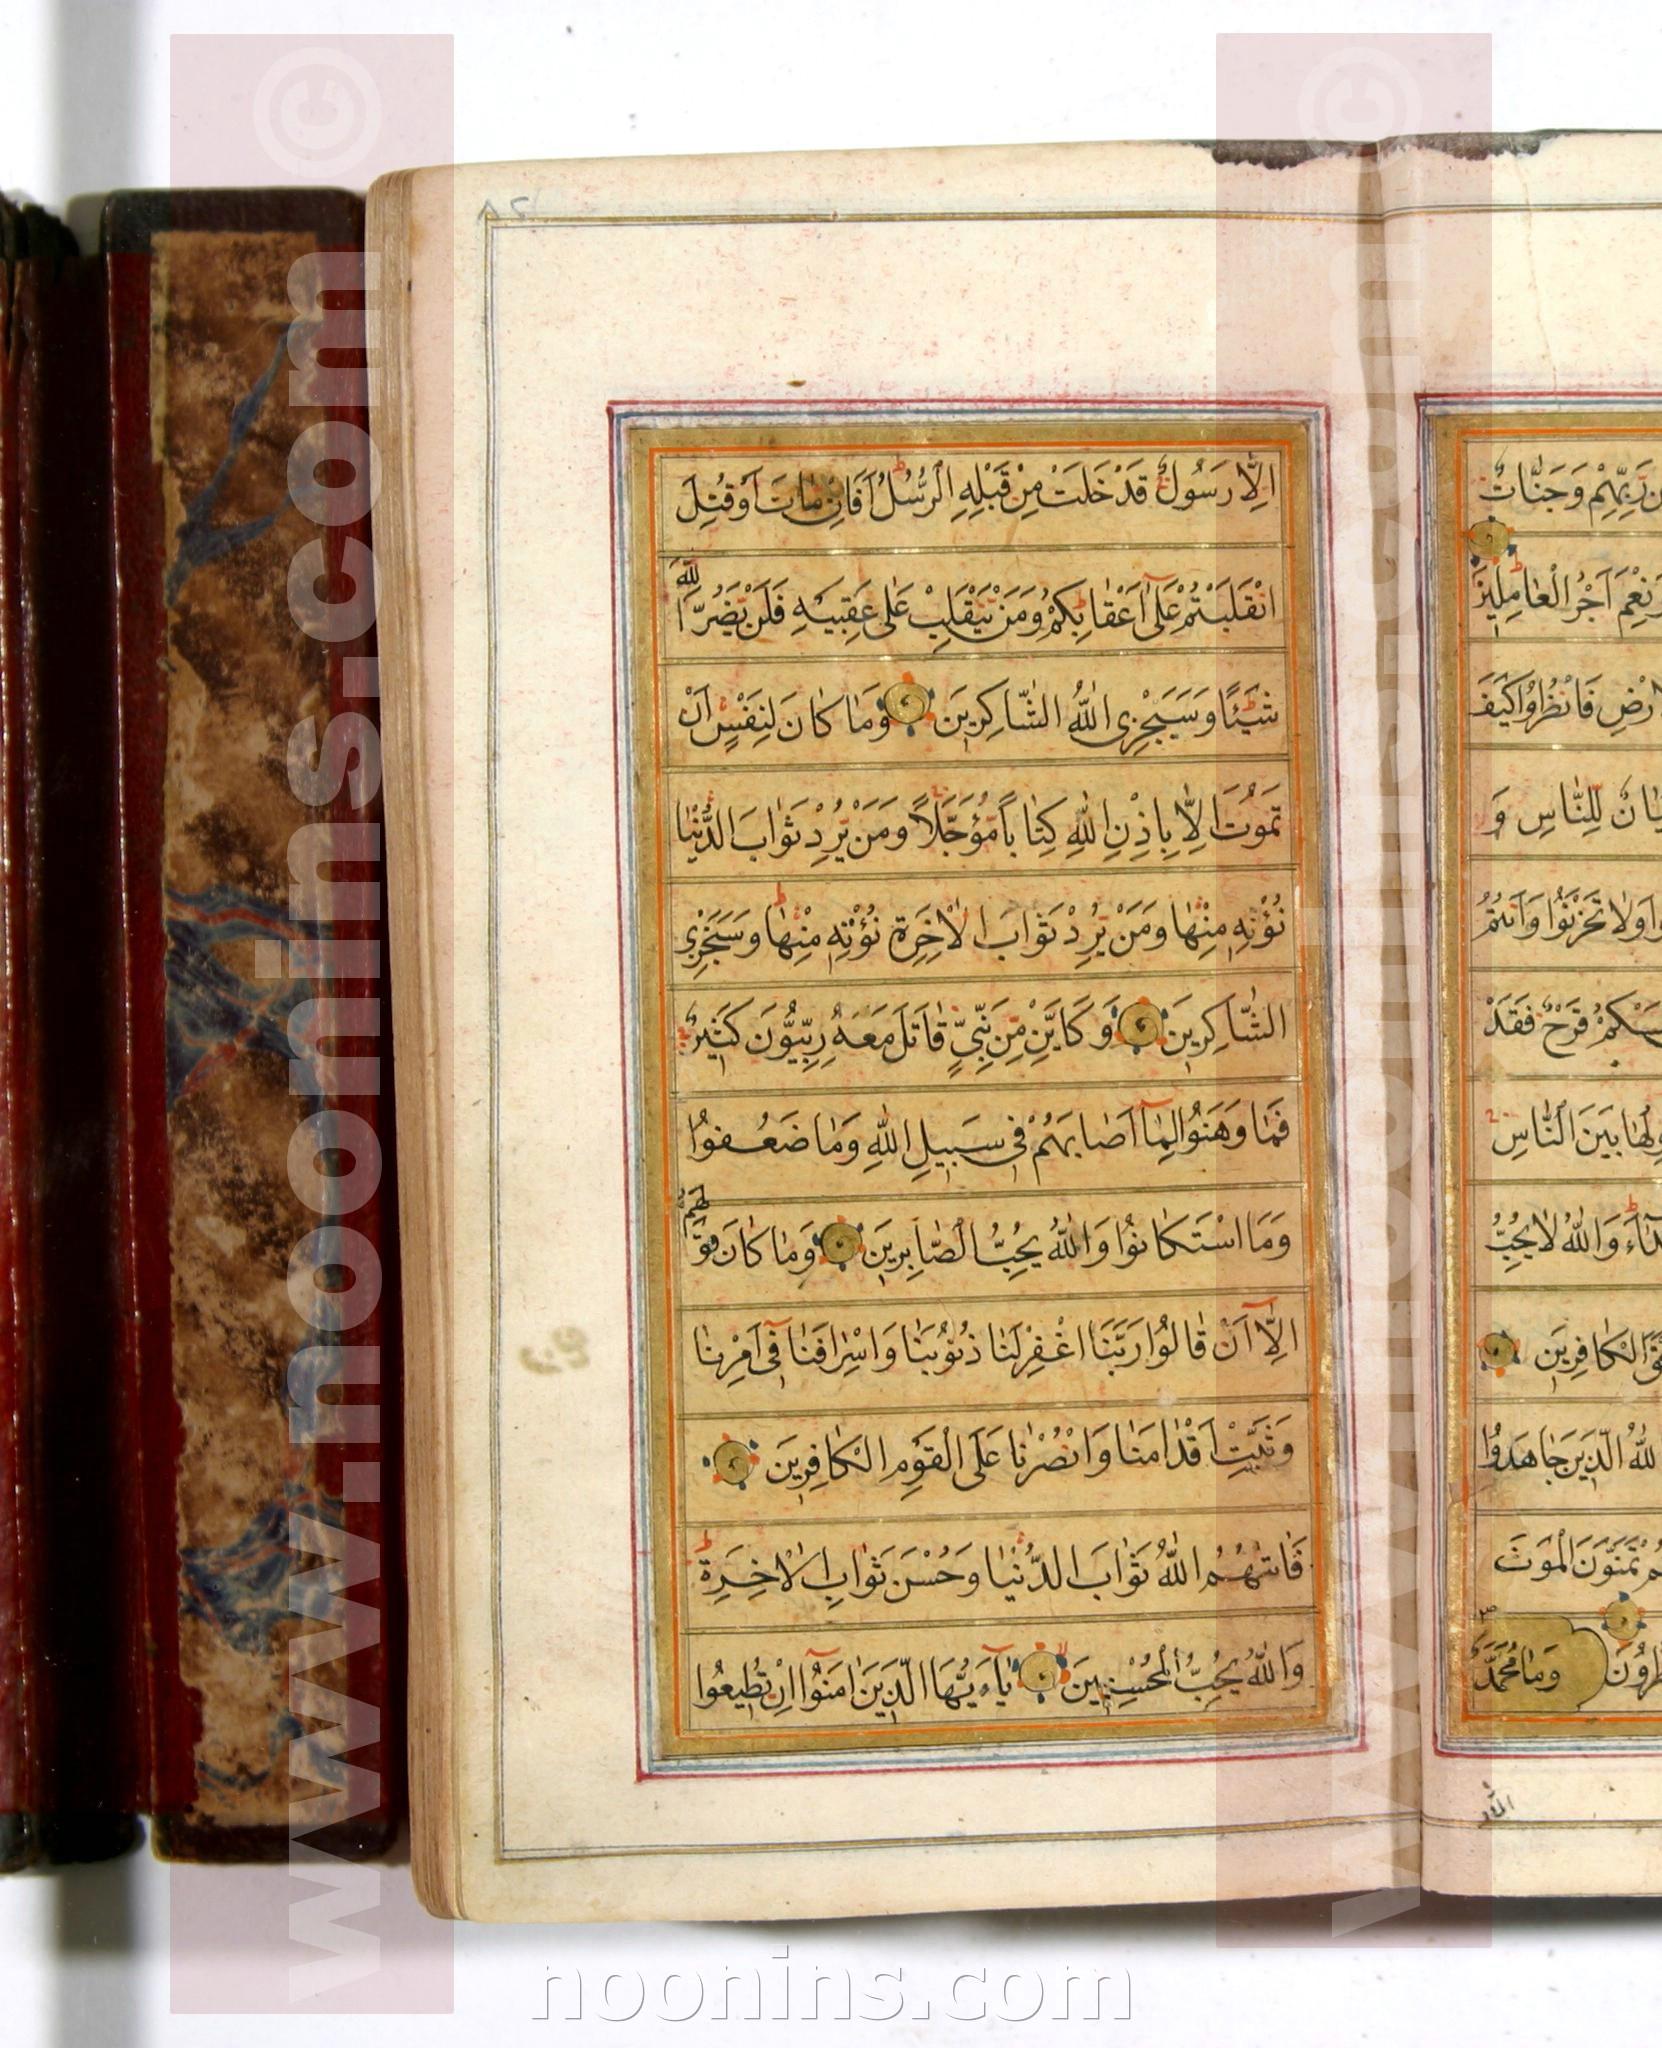 اِلّا رَسُولٌ قَدْ خَلَتْ مِنْ قَبْلِهِ الرُّسُلُ اَفَاِنْ مٰاتَ اَوْ قُتِلَ
انْقَلَبْتُمْ عَلٰى اَعْقٰابِكُمْ وَمَنْ يَنْقَلِبْ عَلٰى عَقِبَيْهِ فَلَنْ يَضُرَّ اللّٰهَ
شَيْئًا وَسَيَجْزِى اللّٰهُ الشّٰاكِرِينَ وَمٰا كٰانَ لِنَفْسٍ اَنْ
تَمُوتَ اِلّٰا بِاِذْنِ اللّٰهِ كِتٰابًا مُؤَجَّلًا وَمَنْ يُرِدْ ثَوٰابَ الدُّنْيٰا
نُؤْتِهِ مِنْهٰا وَمَنْ يُرِدْ ثَوٰابَ الْاٰخِرَةِ نُؤْتِهِ مِنْهٰا وَسَنَجْزِى
الشّٰاكِرِينَ وَكَاَيِّنْ مِنْ نَبِىٍّ قٰاتَلَ مَعَهُ رِبِّيُّونَ كَثِيرٌ
فَمٰا وَهَنُوا لِمٰا اَصٰابَهُمْ فِى سَبِيلِ اللّٰهِ وَمٰا ضَعُفُوا
وَمَا اسْتَكٰانُوا وَاللّٰهُ يُحِبُّ الصّٰابِرِينَ وَمٰا كٰانَ قَوْلَهُمْ
اِلّٰا اَنْ قٰالُوا رَبَّنَا اغْفِرْ لَنٰا ذُنُوبَنٰا وَاِسْرٰافَنٰا فِى اَمْرِنٰا
وَثَبِّتْ اَقْدٰامَنٰا وَانْصُرْنٰا عَلَى الْقَوْمِ الْكٰافِرِينَ
فَاٰتٰهُمُ اللّٰهُ ثَوٰابَ الدُّنْيٰا وَحُسْنَ ثَوٰابِ الْاٰخِرَةِ
وَاللّٰهُ يُحِبُّ الْمُحْسِنِينَ يٰاَيُّهَا الَّذِينَ اٰمَنُوا اِنْ تُطِيعُوا
رَبِّهِمْ وَجَنّٰاتٌ
وَنِعْمَ اَجْرُ الْعٰامِلِينَ
فَانْظُرُوا كَيْفَ
لِلنّٰاسِ وَ
وَلٰا تَحْزَنُوا وَاَنْتُمُ
قَرْحٌ فَقَدْ
بَيْنَ النّٰاسِ
وَاللّٰهُ لٰا يُحِبُّ
الْكٰافِرِينَ
اللّٰهُ الَّذِينَ جٰاهَدُوا
تَمَنَّوْنَ الْمَوْتَ
وَمٰا مُحَمَّدٌ
www.noonins.com ©
www.noonins.com ©
noonins.com